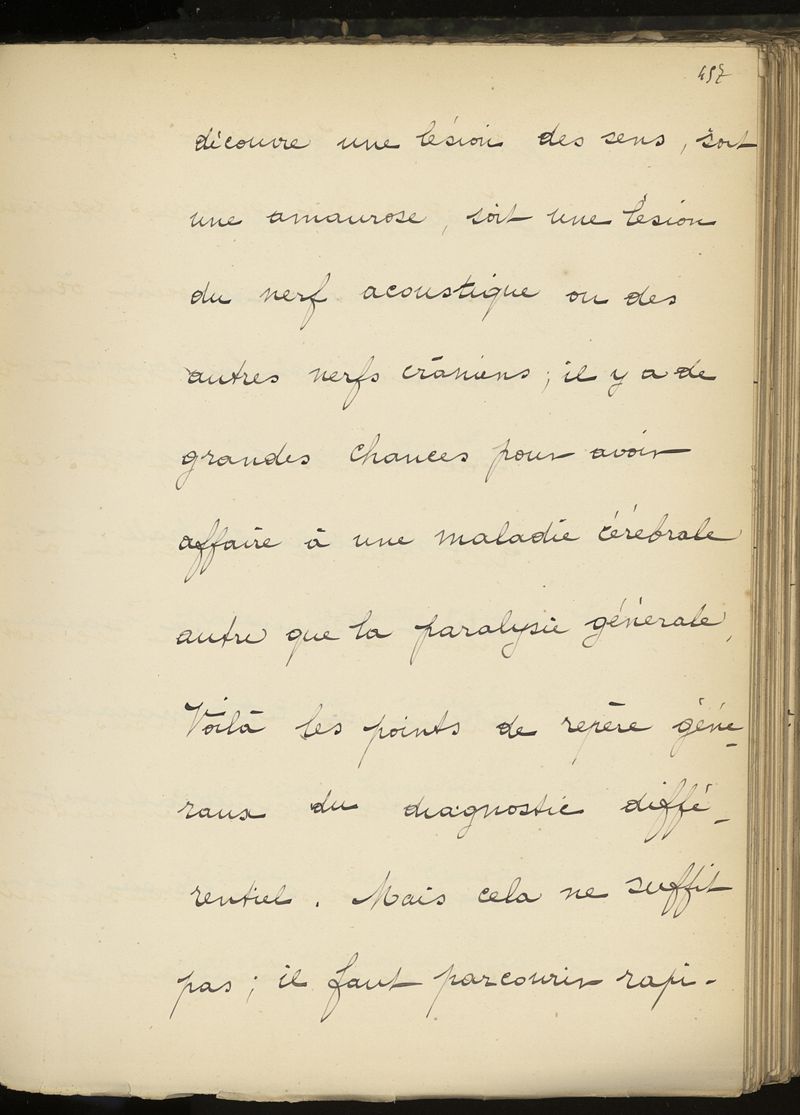 457
découvre une lésion des sens, soit
une amaurose, soit une lésion
du nerf acoustique ou des
autres nerfs crâniens; il y a de
grandes chances pour avoir
affaire à une maladie cérébrale
autre que la paralysie générale,
Voilà les points de repère géné-
raux du diagnostic diffé-
rentiel. Mais cela ne suffit
pas; il faut parcourir rapi-